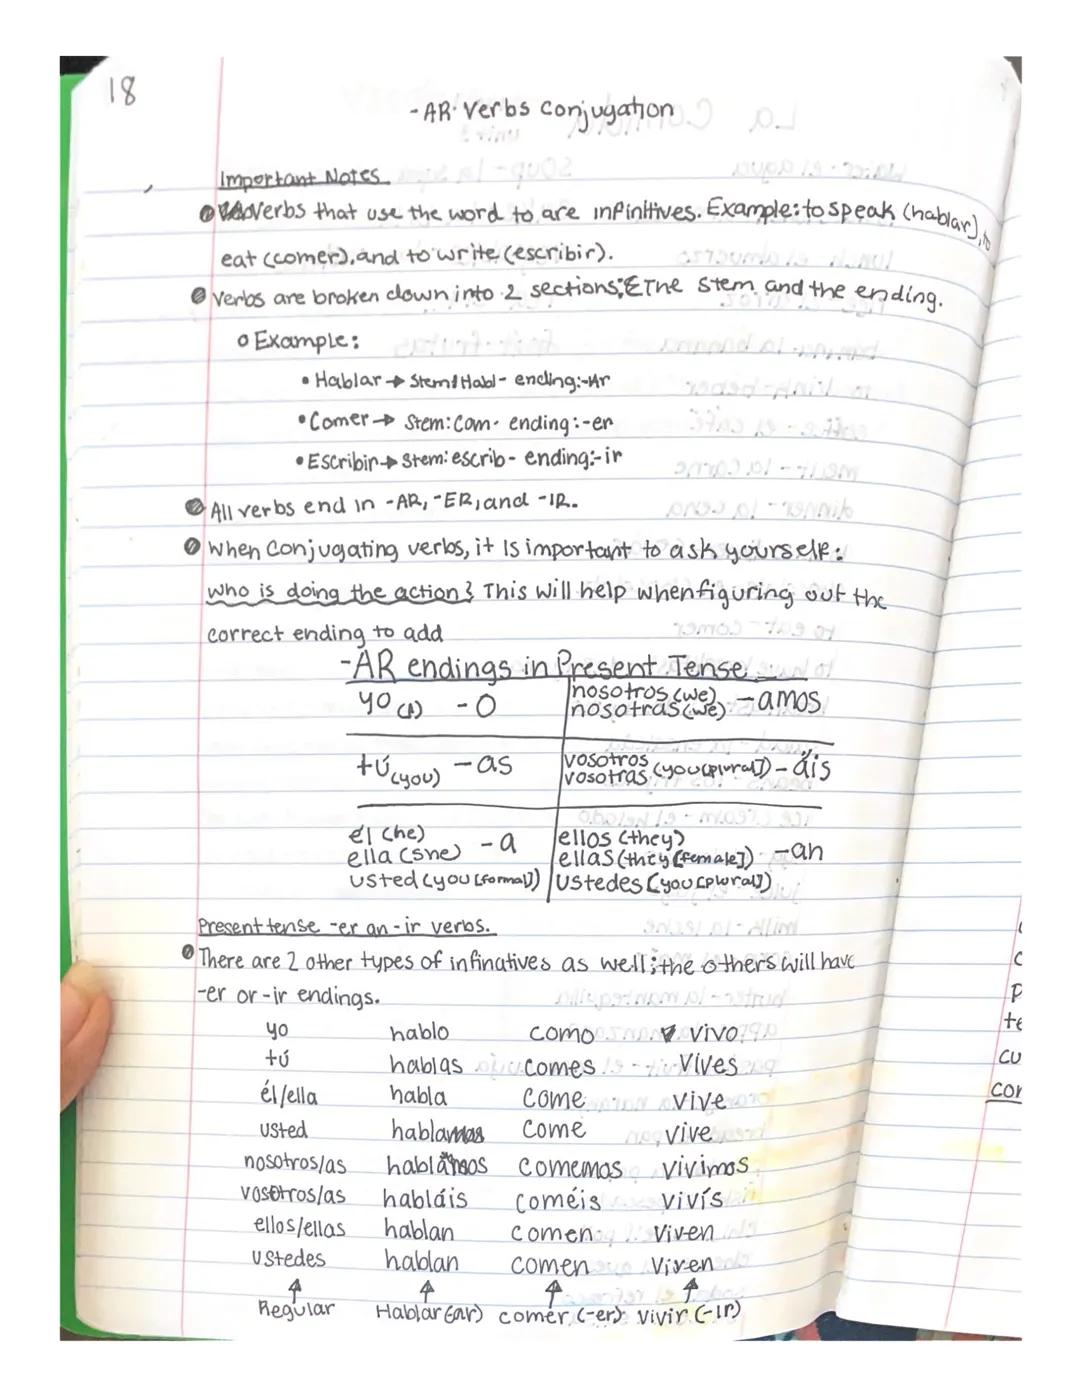 18
-AR Verbs Conjugation
Important Notes
Verbs that use the word to are infinitives. Example: to speak (hablar), to
eat (comer), and to write (escribir).
Verbs are broken down into 2 sections; The stem and the ending.
Example:
Hablar → Stem: Habl- ending:-Ar
Comer → Stem: Com- ending:-er
Escribir → Stem: escrib- ending:-ir
All verbs end in -AR, -ER, and -IR.
When Conjugating verbs, it is important to ask yourself:
Who is doing the action? This will help when figuring out the
correct ending to add
-AR endings in Present Tense
yo (I) -O nosotros (we) nosotras (we) -amos
tú (you) -as vosotros vosotras (you [plural]) -áis
él (he) ella (she) usted (you [formal]) -a ellos (they) ellas (they [female]) ustedes (you [plural]) -an
Present tense -er an -ir verbs.
There are 2 other types of infinatives as well; the others will have
-er or -ir endings.
yo hablo como vivo
tú hablas comes vives
él/ella habla come vive
usted come vive
nosotros/as comemos vivimos
vosotros/as habláis coméis vivís
ellos/ellas hablan comen viven
ustedes hablan comen viven
Regular Hablar (-ar) comer (-er) vivir (-ir)
p
te
cu
cor